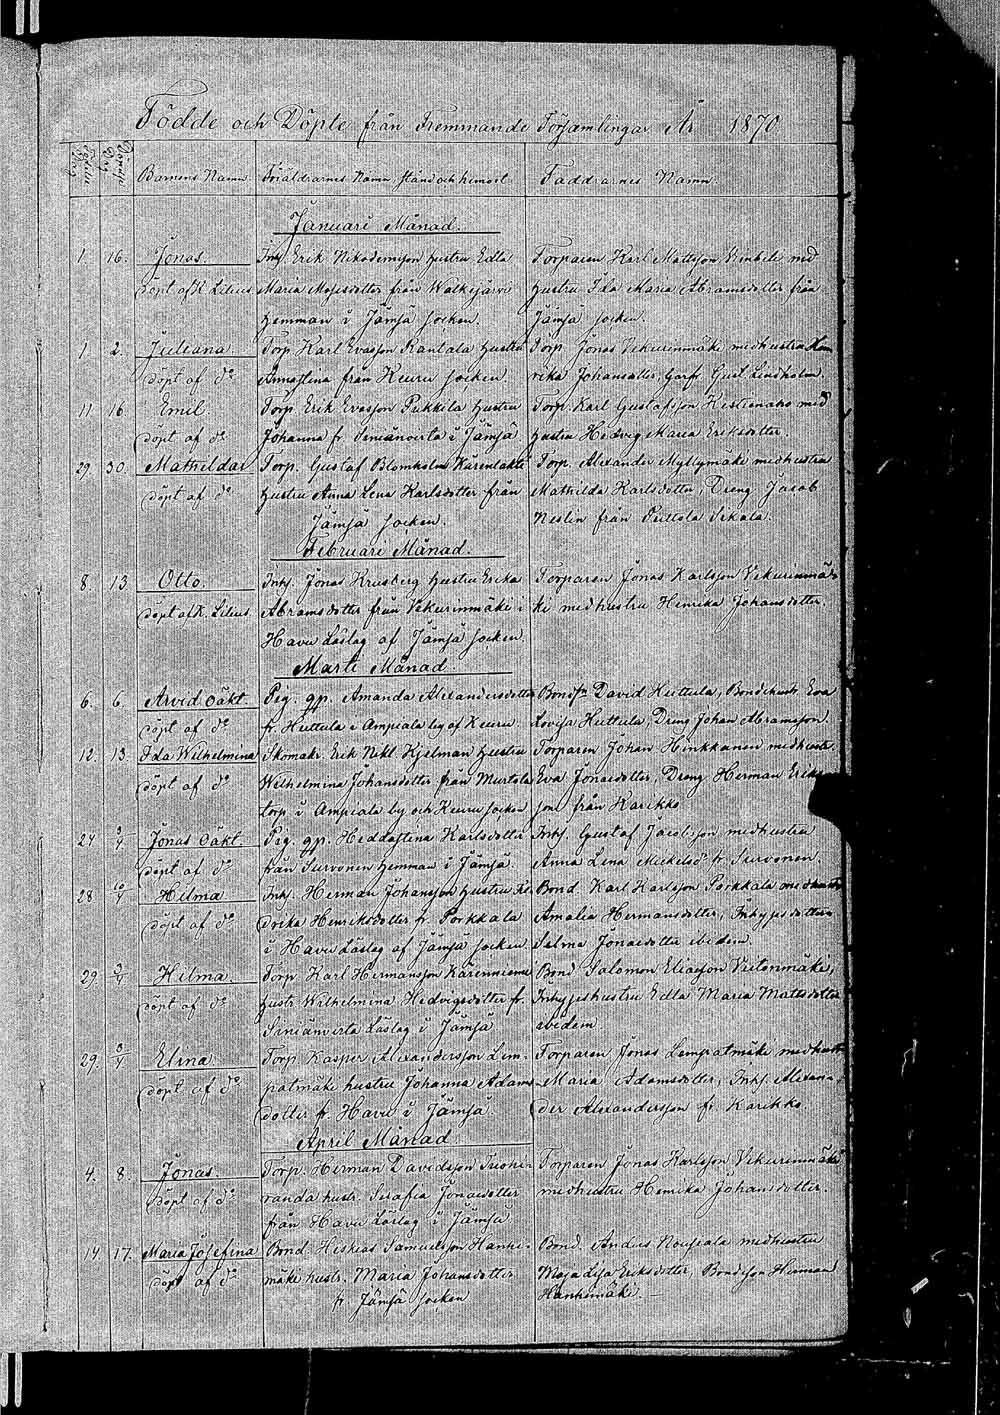 Födde och Döpte från Fremmande Församlingar År 1870
Födelse Dag Döpelse Dag Barnens Namn Föräldrarnes Namn stånd och hemort Faddrarnes Namn
Januari Månad.
1. 16. Jonas. Inhs. Erik Nikodemsson hustru Edla Torparen Karl Mattsson Vinkelä med
döpt af K. Lilius Maria Mosisdotter från Walkejärvi hustru Ida Maria Abramsdotter från
hemman i Jämsä socken. Jämsä socken.
1. 2. Juliana Torp Karl Evasson Rantala hustru Torp Jonas Vekurinmäki med hustru Hen
döpt af do Annastina från Keuru socken. rika Johansdotter, Garf. Gust. Lindholm.
11 16 Emil. Torp. Erik Evasson Pukkila hustru Torp. Karl Gustafsson med
döpt af do Johanna fr. i Jämsä hustru Hedvig Maria Eriksdotter.
29. 30. Mathilda Torp. Gustaf Blomholm hustru Torp. Alexander Myllymäki med hustru
döpt af do hustru Anna Lena Karlsdotter från Mathilda Karlsdotter, Dreng Jacob
Jämsä socken. Neslin från Puttola Vekala.
Februari Månad.
8. 13 Otto. Inhs. Jonas Krusberg hustru Erika Torparen Jonas Karlsson Vekurinmä-
döpt af K. Lilius Abramsdotter från Vekurinmäki i ki med hustru Henrika Johansdotter.
Havu Läslag af Jämsä socken.
Marti Månad
6. 6. Arvid Oäkt. Pig. gp. Amanda Alexandersdotter Bondsn David Huttula, Bondehustr Eva
döpt af do fr. Huttula i Ampiala by af Keuru. Lovisa Huttula, Dreng Johan Abramsson.
12. 13 Ida Wilhelmina Skomak. Erik Nikl. Kjelman hustru Torparen Johan Hinkkanen med hustr.
döpt af do Wilhelmina Johansdotter från Murtola Eva Jonasdotter, Dreng Herman Eriks
torp i Ampiala by och Keuru socken son från Karikko
24 3/4 Jonas Oäkt. Pig. gp. Heddastina Karlsdotter Inhs. Gustaf Jacobsson med hustru
döpt af do från Survonen hemman i Jämsä. Anna Lena Mickelsdr fr. Survonen.
28 10/4 Hilma Inhs. Herman Johansson hustru Fre Bond Karl Karlsson Porkkala med hustr
döpt af do drika Henriksdotter fr. Porkkala Amalia Hermansdotter, Inhyjesdottern
i Havu Läslag af Jämsä socken Selma Jonasdotter ibidem.
29. Hilma. Torp Karl Hermansson Kärenniemi Bond Salomon Eliasson Vutonmäki,
döpt af do hustr Wilhelmina Hedvigsdotter fr. Inhyjeshustru Edla Maria Mattsdotter
Läslag i Jämsä ibidem
29. 3/4 Elina Torp Kasper Alexandersson Lem- Torparen Jonas Lempatmäki med hustr
döpt af do patmäki hustru Johanna Adams- Maria Adamsdotter, Inhs. Alexan-
dotter fr. Havu i Jämsä der Alexandersson fr. Karikko.
April Månad
4. 8. Jonas Torp. Herman Davidsson Torparen Jonas Karlsson Vekurinmäki
döpt af do randa hustr. Serafia Jonasdotter med hustru Henrika Johansdotter.
från Havu Läslag i Jämsä
14. 17. Maria Josefina Bond. Heskias Samuelsson Hanhi- Bond Anders med hustru
döpt af do mäki hustr. Maria Johansdotter Maja Lisa Eriksdotter, Bondeson Herman
fr. Jämsä socken Hanhimäki.